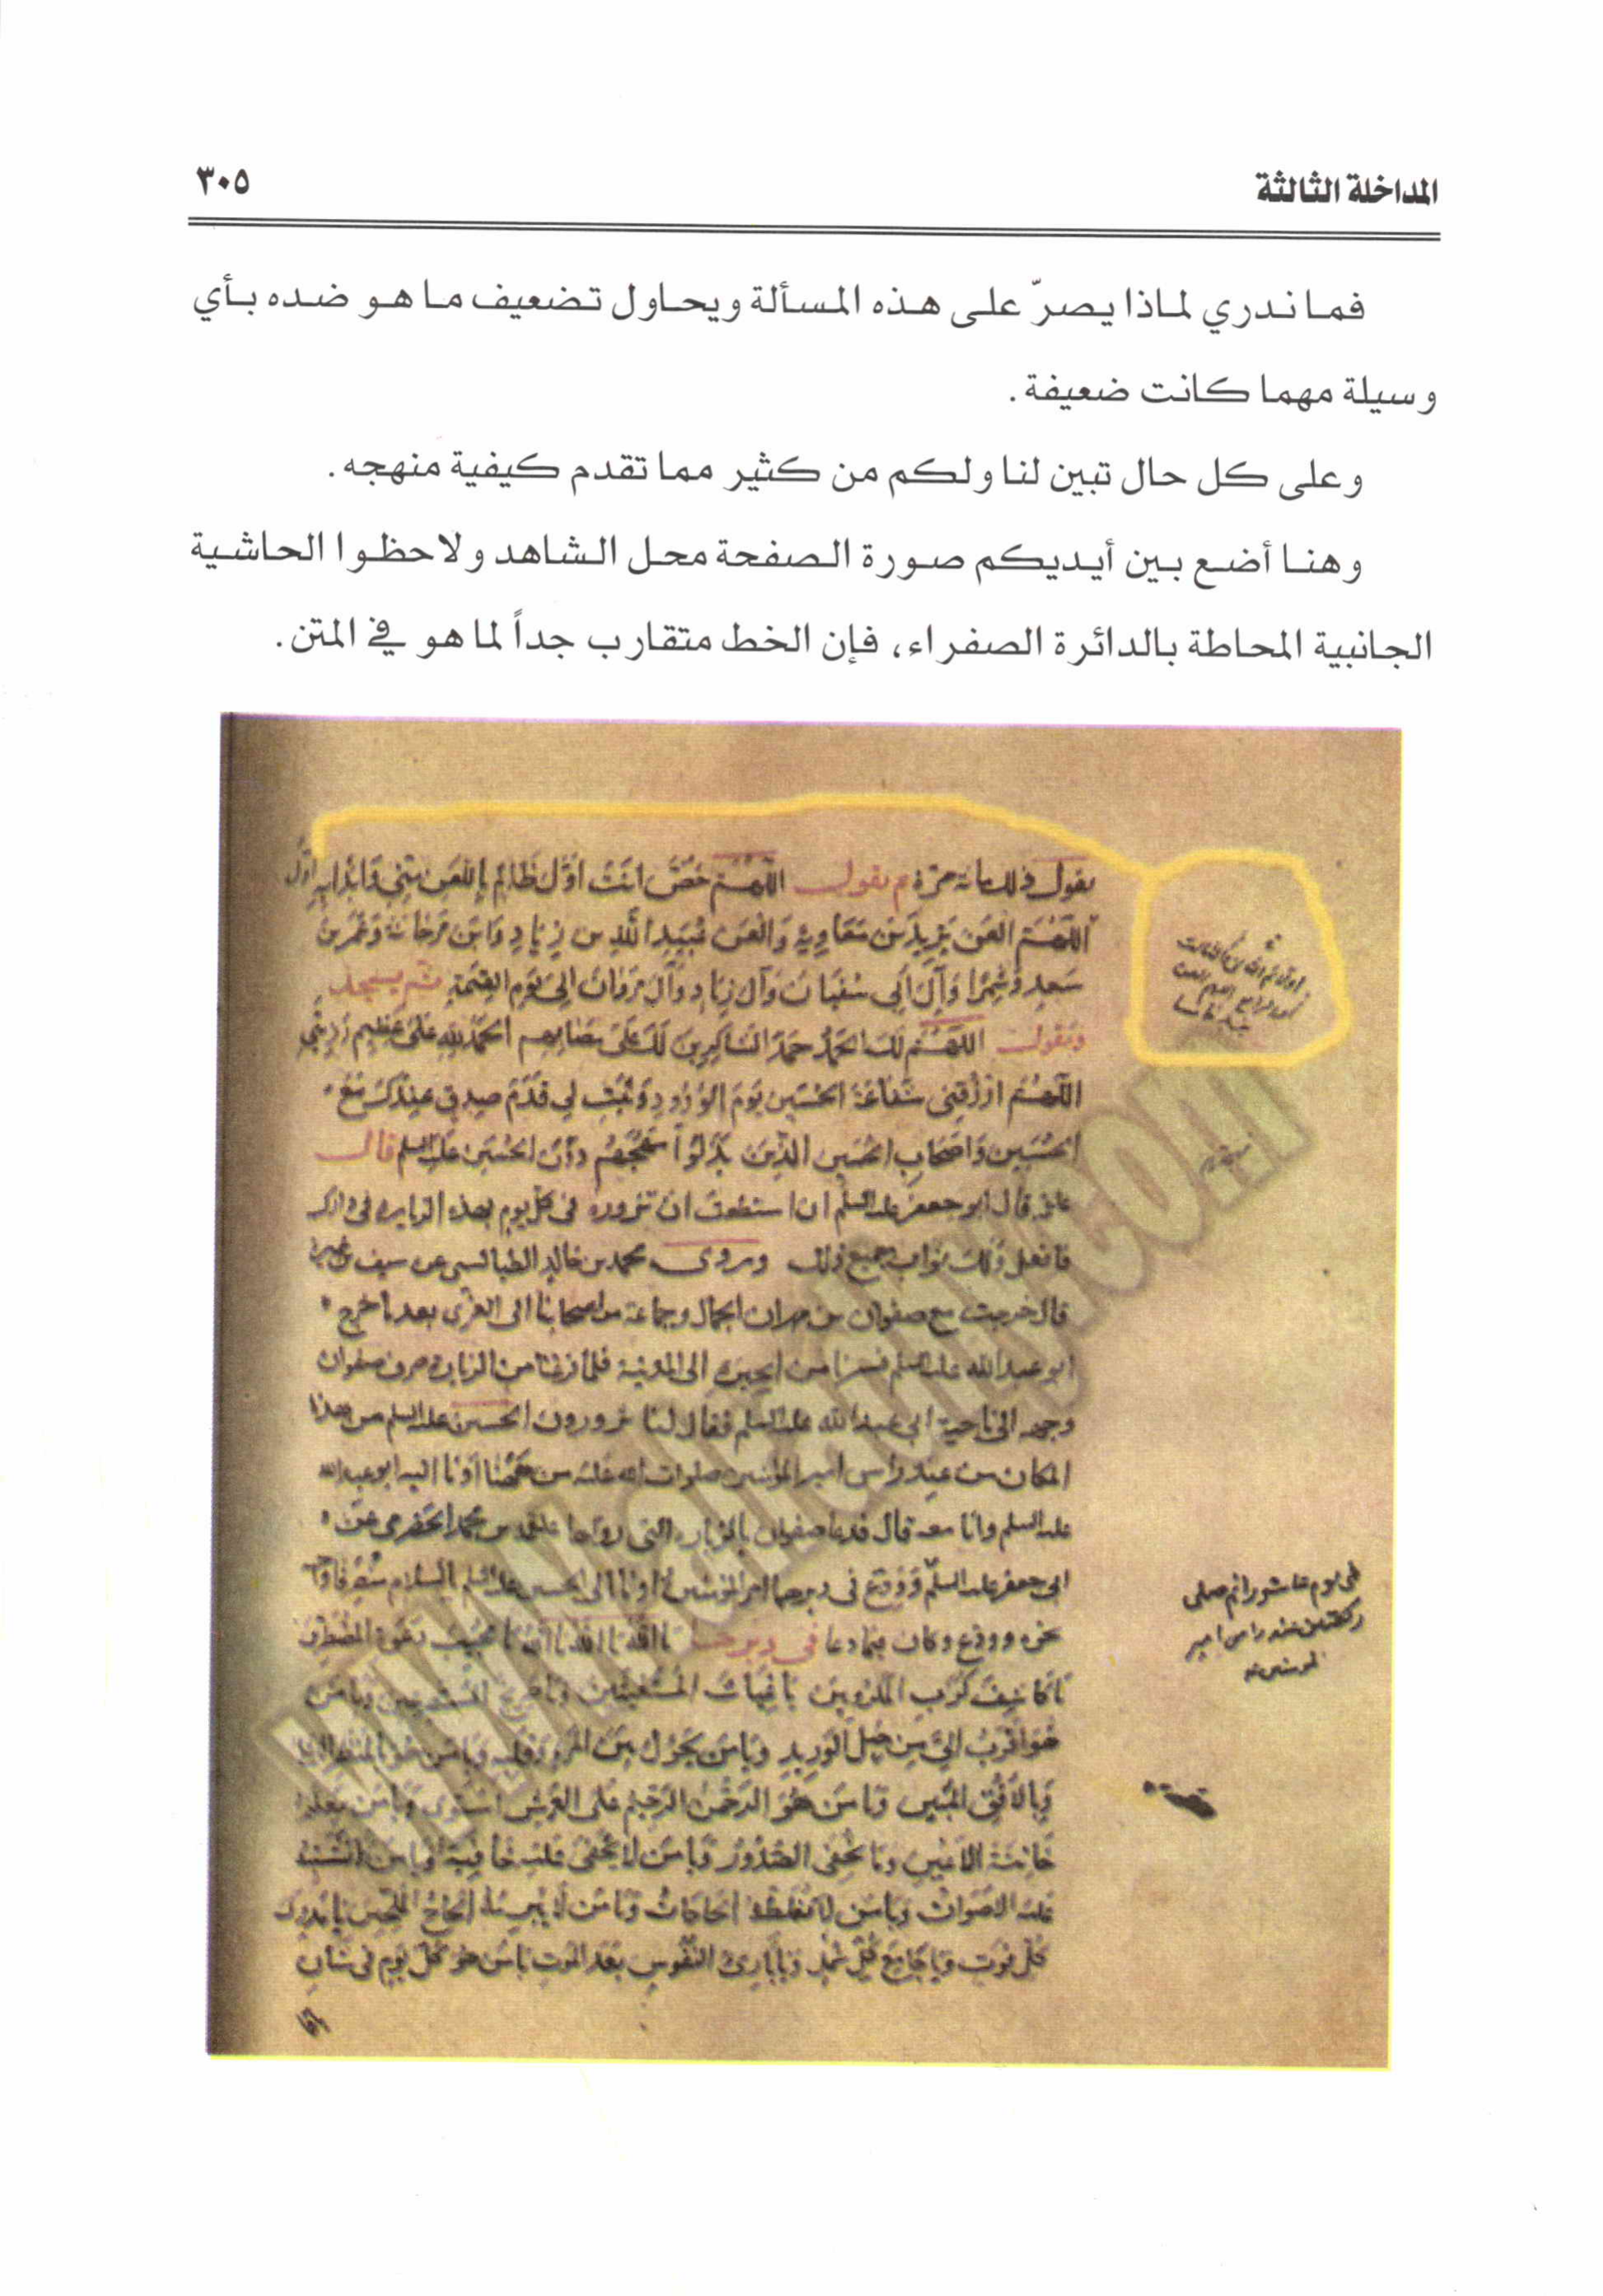 المداخلة الثالثة
٣٠٥
فما ندري لماذا يصرّ على هذه المسألة ويحاول تضعيف ما هو ضده بأي
وسيلة مهما كانت ضعيفة.
وعلى كل حال تبين لنا ولكم من كثير مما تقدم كيفية منهجه.
وهنا أضع بين أيديكم صورة الصفحة محل الشاهد ولاحظوا الحاشية
الجانبية المحاطة بالدائرة الصفراء، فإن الخط متقارب جداً لما هو في المتن.
يقول ذلك مائة مرة ثم يقول اللَّهُمَّ خُصَّ اَنْتَ اَوَّلَ ظَالِمٍ بِاللَّعْنِ مِنّي وَابْدَأ بِهِ اَوَّلَ
اَللّهُمَّ الْعَنْ يَزِيدَ بْنَ مُعَاوِيَةَ وَالْعَنْ عُبَيْدَ اللّهِ بن زِيَادٍ وَابْنَ مَرْجَانَةَ وَعُمَرَ بْنَ
سَعْدٍ وَشِمْرًا وَآلَ اَبِي سُفْيَانَ وَآلَ زِيَادٍ وَآلَ مَرْوَانَ اِلىَ يَوْمِ القِيمَةِ ثم يسجد
ويقول اللَّهُمَّ لَكَ الحَمْدُ حَمْدَ الشَاكِرِينَ لَكَ عَلَى مُصَابِهِم اَلْحَمْدُ لِلّهِ عَلىَ عَظِيمِ رَزِيَّتِي
اللَّهُمَّ ارْزُقْنِي شَفَاعَةَ الحُسَيْنِ يَوْمَ الوُرُودِ وَثَبِّتْ لِي قَدَمَ صِدقٍ عِنْدَكَ مَعَ
الحُسَيْنِ وَاَصْحَابِ الحُسَيْنِ الَّذِينَ بَذَلُوا مُهَجَهُم دُونَ الحُسَيْنِ عليه السلم قال
علقمة قال ابو جعفر عليه السلم ان استطعت ان تزوره في كل يوم بهذه الزيارة في دارك
فافعل ولك ثواب جميع ذلك وروى محمد بن خالد الطيالسي عن سيف بن عميرة
قال خرجت مع صفوان بن مهران الجمال وجماعة من اصحابنا الى الغري بعد ما خرج
ابو عبد الله عليه السلم فسرنا من الحيرة الى المدينة فلما فرغنا من الزيارة صرف صفوان
وجهه الى ناحية ابي عبد الله عليه السلم فقال لنا تزورون الحسين عليه السلم من هذا
المكان من عند راس امير المؤمنين صلوات الله عليه من ههنا اومأ اليه ابو عبد الله
عليه السلم وانا معه قال فدعا صفوان بالزيارة التي رواها علقمة بن محمد الحضرمي عن
ابي جعفر عليه السلم وودع في دبرها امير المؤمنين واومأ الى الحسين عليه السلم بالسلام
نحوه وودع وكان فيما دعا في دبرها يَا اَللّهُ يَا اَللّهُ يَا اَللّهُ يَا مُجِيبَ دَعْوَةِ المُضْطَرِّينَ
يَا كَاشِفَ كُرَبِ المَكْرُوبِينَ يَا غِيَاثَ المُسْتَغِيثِينَ وَيَا صَرِيخَ المُسْتَصْرِخِينَ وَيَا مَنْ
هُوَ اَقْرَبُ اِلَيَّ مِن حَبْلِ الوَرِيدِ وَيَا مَن يَحُولُ بَيْنَ المَرْءِ وَقَلْبِهِ وَيَا مَن هُوَ بِالمَنْظَرِ الاَعْلىَ
وَبِالاُفُقِ المُبِينِ وَيَا مَن هُوَ الرَّحْمنُ الرَّحِيمُ عَلىَ العَرْشِ اسْتَوى وَيَا مَنْ يَعْلَمُ
خَائِنَةَ الاَعْيُنِ وَمَا تُخْفِي الصُّدُورُ وَيَا مَن لَا يَخْفَى عَلَيْهِ خَافِيَةٌ وَيَا مَن لَا تَشْتَبِهُ
عَلَيْهِ الاَصْوَاتُ وَيَا مَن لَا تُغَلِّطُهُ الحَاجَاتُ وَيَا مَن لَا يُبْرِمُهُ اِلْحَاحُ المُلِحِّينَ يَا مُدْرِكَ
كُلِّ فَوْتٍ وَيَا جَامِعَ كُلِّ شَمْلٍ وَيَا بَارِئَ النُّفُوسِ بَعْدَ المَوْتِ يَا مَن هُوَ كُلَّ يَوْمٍ في شَأنٍ
في يوم عاشورا ثم صلى
ركعتين عند راس امير
المؤمنين